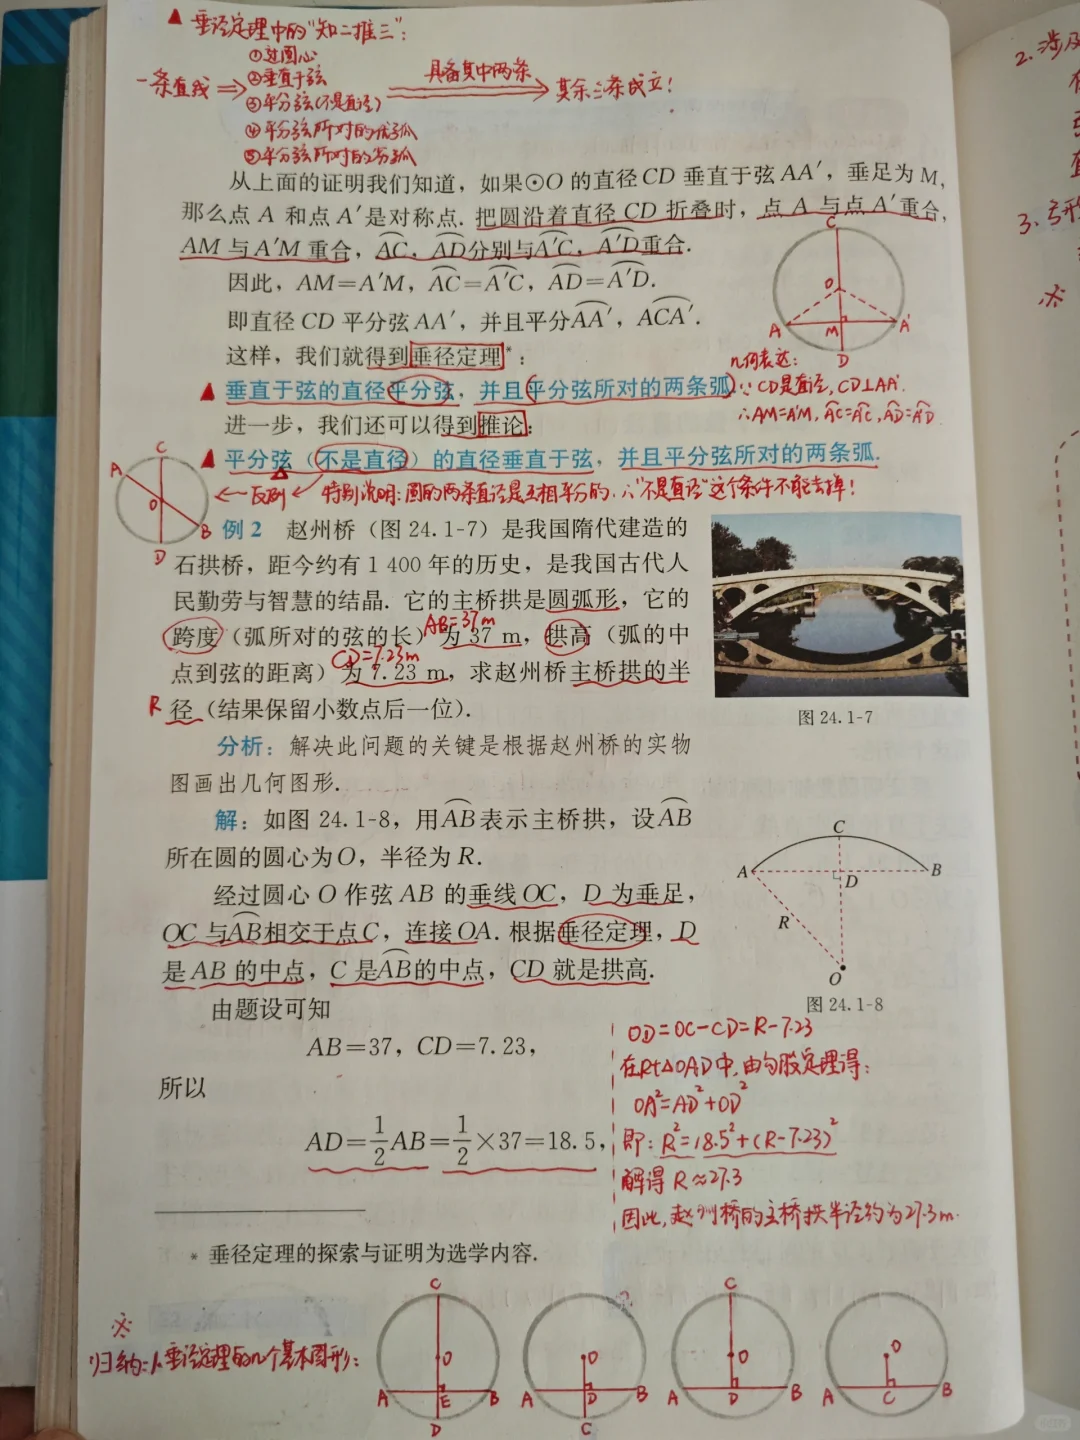 ▲ 垂径定理中的"知二推三":
①过圆心
一条直线⇒ ②垂直于弦 具备其中两条 其余三条成立!
③平分弦(不是直径)
④平分弦所对的优弧
⑤平分弦所对的劣弧
从上面的证明我们知道，如果⊙O 的直径CD 垂直于弦AA′，垂足为 M，
那么点 A 和点 A′是对称点. 把圆沿着直径 CD 折叠时，点 A 与点 A′重合，
AM 与 A′M 重合，AC，AD分别与A′C，A′D重合.
因此，AM=A′M，AC=A′C，AD=A′D.
即直径 CD 平分弦 AA′，并且平分AA′，ACA′.
这样，我们就得到垂径定理*：
▲ 垂直于弦的直径平分弦，并且平分弦所对的两条弧.
进一步，我们还可以得到推论：
▲ 平分弦（不是直径）的直径垂直于弦，并且平分弦所对的两条弧.
C
O
A
M
A′
D
几何表达:
∵CD是直径, CD⊥AA′.
∴AM=A′M, AC=A′C, AD=A′D
C
A
O
B
D
←反例 特别说明:圆的两条直径是互相平分的,∴"不是直径"这个条件不能去掉!
例 2 赵州桥（图 24.1-7）是我国隋代建造的
石拱桥，距今约有 1 400 年的历史，是我国古代人
民勤劳与智慧的结晶. 它的主桥拱是圆弧形，它的
AB=37m
跨度（弧所对的弦的长）为 37 m，拱高（弧的中
CD=7.23m
点到弦的距离）为 7.23 m，求赵州桥主桥拱的半
R 径（结果保留小数点后一位）.
图 24.1-7
分析：解决此问题的关键是根据赵州桥的实物
图画出几何图形.
解：如图 24.1-8，用AB表示主桥拱，设AB
所在圆的圆心为O，半径为 R.
经过圆心 O 作弦 AB 的垂线 OC，D 为垂足，
OC 与AB相交于点C，连接 OA. 根据垂径定理，D
是 AB 的中点，C 是AB的中点，CD 就是拱高.
C
A
D
B
R
O
图 24.1-8
由题设可知
AB=37，CD=7.23，
所以
AD=1/2AB=1/2×37=18.5，
OD=OC-CD=R-7.23
在Rt△OAD中,由勾股定理得:
OA²=AD²+OD²
即: R²=18.5²+(R-7.23)²
解得 R≈27.3
因此,赵州桥的主桥拱半径约为27.3m.
* 垂径定理的探索与证明为选学内容.
※
归纳:1.垂径定理的几个基本图形:
C
O
A
E
B
D
O
A
D
B
C
C
O
A
D
B
O
A
C
B
2. 涉及
3. 弓形
※